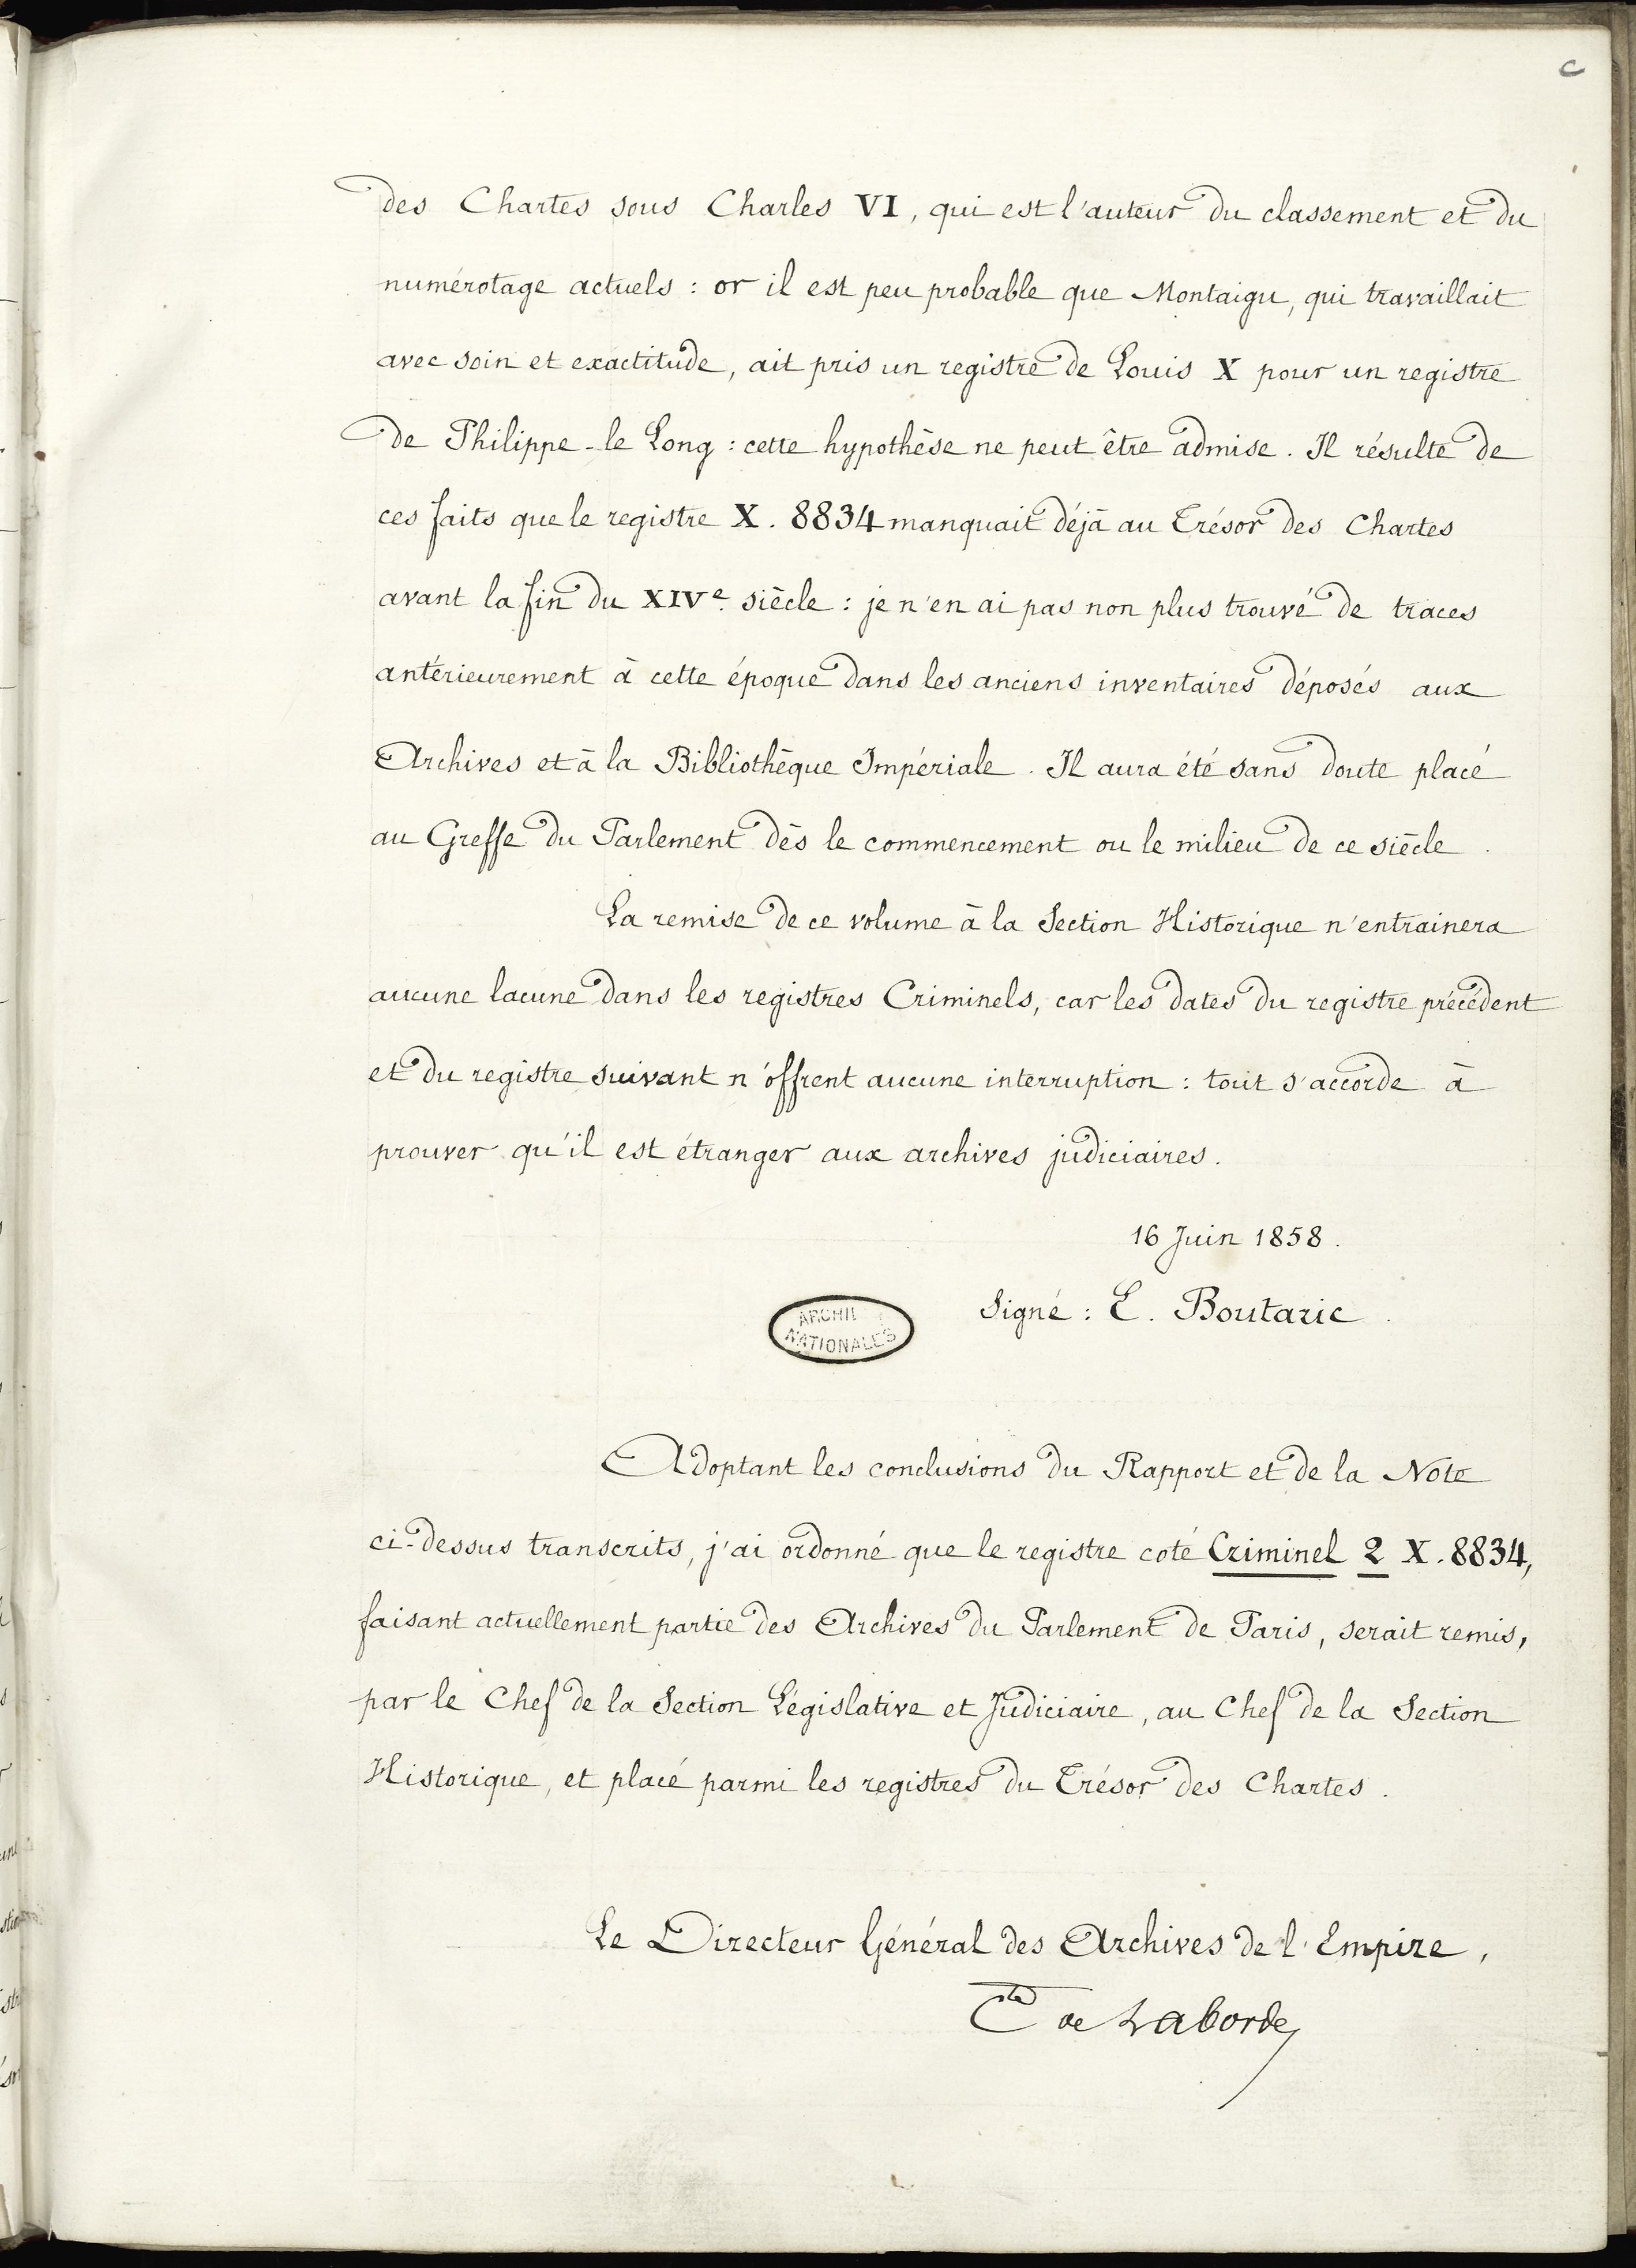 c
des Chartes sous Charles VI, qui est l'auteur du classement et du
numérotage actuels : or il est peu probable que Montaigu, qui travaillait
avec soin et exactitude, ait pris un registre de Louis X pour un registre
de Philippe-le Long : cette hypothèse ne peut être admise. Il résulte de
ces faits que le registre X. 8834 manquait déjà au Trésor des Chartes
avant la fin du XIVe. siècle : je n'en ai pas non plus trouvé de traces
antérieurement à cette époque dans les anciens inventaires déposés aux
Archives et à la Bibliothèque Impériale. Il aura été sans doute placé
au Greffe du Parlement dès le commencement ou le milieu de ce siècle.
La remise de ce volume à la Section Historique n'entrainera
aucune lacune dans les registres Criminels, car les dates du registre précédent
et du registre suivant n'offrent aucune interruption : tout s'accorde à
prouver qu'il est étranger aux archives judiciaires.
16 Juin 1858.
Signé : E. Boutaric.
ARCHI
NATIONALES
Adoptant les conclusions du Rapport et de la Note
ci-dessus transcrits, j'ai ordonné que le registre coté Criminel 2 X. 8834,
faisant actuellement partie des Archives du Parlement de Paris, serait remis,
par le Chef de la Section Législative et Judiciaire, au Chef de la Section
Historique, et placé parmi les registres du Trésor des Chartes.
Le Directeur Général des Archives de l'Empire,
Cte de Laborde